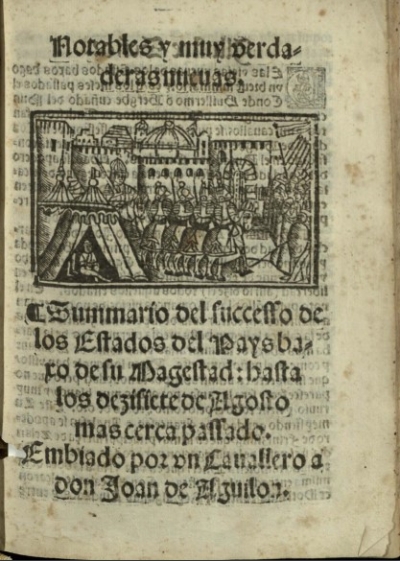 Notables y muy verda-
deras nuevas.
¶ Summario del successo de
los Estados dél Pays ba-
xo de su Magestad: hasta
los dezisiete de Agosto
mas cerca passado.
Embiado por vn Cauallero a
don Joan de Aguilon.